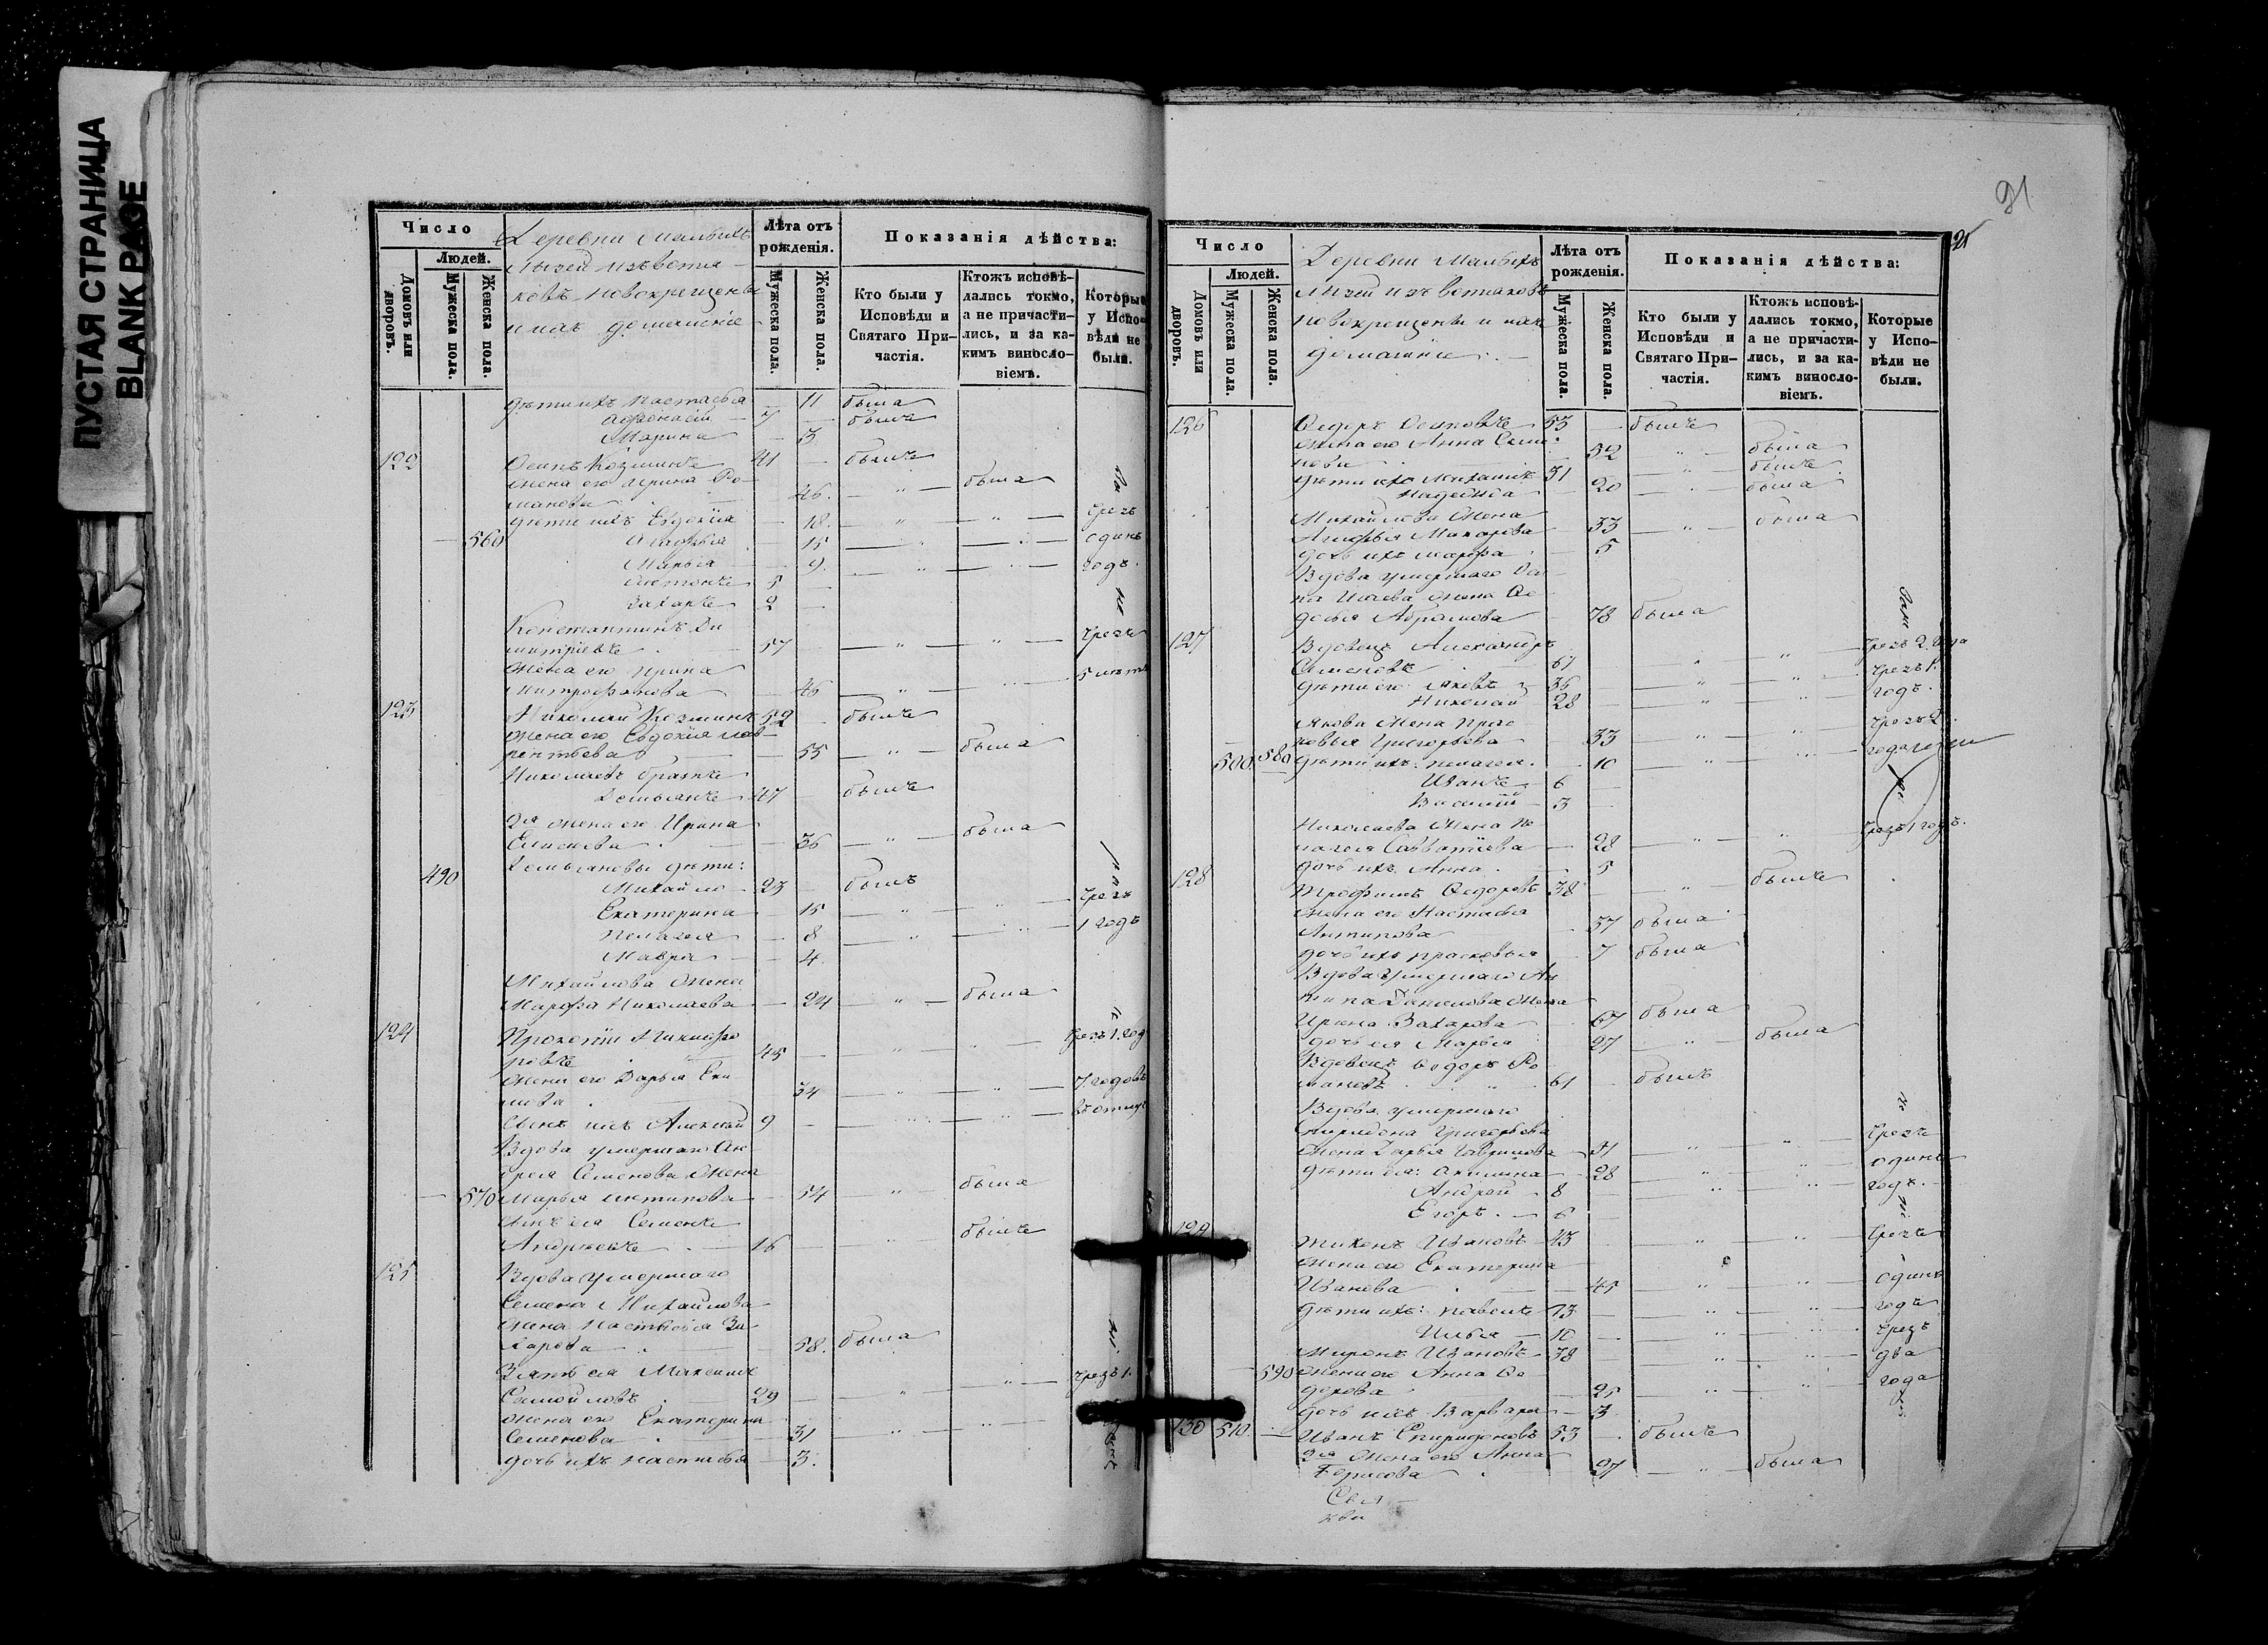 ПУСТАЯ СТРАНИЦА
BLANK PAGE
Число
Людей.
Домовъ или дворовъ.
Мужеска пола.
Женска пола.
Деревни
новокрещены
домашніе
Лѣта отъ рожденія.
Мужеска пола.
Женска пола.
Показанія дѣйства:
Кто были у Исповѣди и Святаго Причастія.
Ктожъ исповѣдались токмо, а не причастились, и за какимъ винословіемъ.
Которые у Исповѣди не были.
дѣти ихъ Настасья 11 была
Афонасій 7 былъ
Марина 3
122 Осипъ Козминъ 41 былъ
жена его Ирина Романова 46 была
дѣти ихъ Евдокія 18 чрезъ
560 Агафья 15 одинъ
Марья 9 годъ
Антонъ 5
Захаръ 2
Константинъ Дмитріевъ 57 чрезъ
жена его Ирина Митрофанова 46 5 лѣтъ
123 Николай Козминъ 59 былъ
жена его Евдокія Лаврентьева 55 была
Николаевъ братъ
Демьянъ 47 былъ
2я жена его Ирина
Елисеева 36 была
Демьяновы дѣти:
490 Михайло 23 былъ
Екатерина 15 чрезъ
Пелагея 8 1 годъ
Мавра 4
Михайлова жена
Марфа Николаева 24 была
124 Прокопій Никифоровъ 45 чрезъ 1 год
жена его Дарья 34 7 годовъ
Сынъ ихъ Алексѣй 9
Вдова умершаго Андрея Семенова жена
570 Марья Антипова 54 была
сынъ ея Семенъ
Андреевъ 16 былъ
125 Вдова умершаго
Семена Михайлова
жена Настасья Захарова 58 была
Зять ея Максимъ
Самойловъ 29 чрезъ 1
жена его Екатерина
Семенова 31
дочь ихъ Настасья 3
91
Число
Людей.
Домовъ или дворовъ.
Мужеска пола.
Женска пола.
Деревни
изъ вотяковъ
новокрещены и ихъ
домашніе
Лѣта отъ рожденія.
Мужеска пола.
Женска пола.
Показанія дѣйства:
Кто были у Исповѣди и Святаго Причастія.
Ктожъ исповѣдались токмо, а не причастились, и за какимъ винословіемъ.
Которые у Исповѣди не были.
126 Федоръ Осиповъ 53 былъ
жена его Анна Семенова 52 была
дѣти ихъ Михаилъ 31 былъ
Надежда 20 была
Михайлова жена
Агафья Макарова 33 была
дочь ихъ Марфа 5
Вдова умершаго Осипа жена
Абрамова 78 была
127 Вдовецъ Александръ
Семеновъ 67 чрезъ 2 года
дѣти его Яковъ 36 чрезъ 1
Николай 28 годъ
Якова жена Прасковья Григорьева 33 чрезъ 2
500 580 дѣти ихъ: Пелагея 10 года
Иванъ 6
Василій 3
Николаева жена Пелагея Савватіева 28 чрезъ 1 годъ
дочь ихъ Анна 5
128 Трофимъ Федоровъ 38 былъ
жена его Настасья
Антипова 37 была
дочь ихъ Прасковья 7 была
Вдова умершаго Антипа Данилова жена
Ирина Захарова 67 была
дочь ея Марья 27 была
Вдовецъ Федоръ Романовъ 61 былъ
Вдова умершаго
Спиридона Григорьева чрезъ
жена Дарья Гаврилова 51
дѣти ея: Акилина 28 одинъ
Андрей 8 годъ
Егоръ 6
129 Тихонъ Ивановъ 43 чрезъ
жена его Екатерина
Иванова 45 одинъ
дѣти ихъ: Павелъ 13 годъ
Илья 10 чрезъ
Миронъ Ивановъ 38 два
590 жена его Анна Федорова 25 года
дочь ихъ Варвара 3
130 510 Иванъ Спиридоновъ 53 былъ
2я жена его Анна
Борисова 27 была